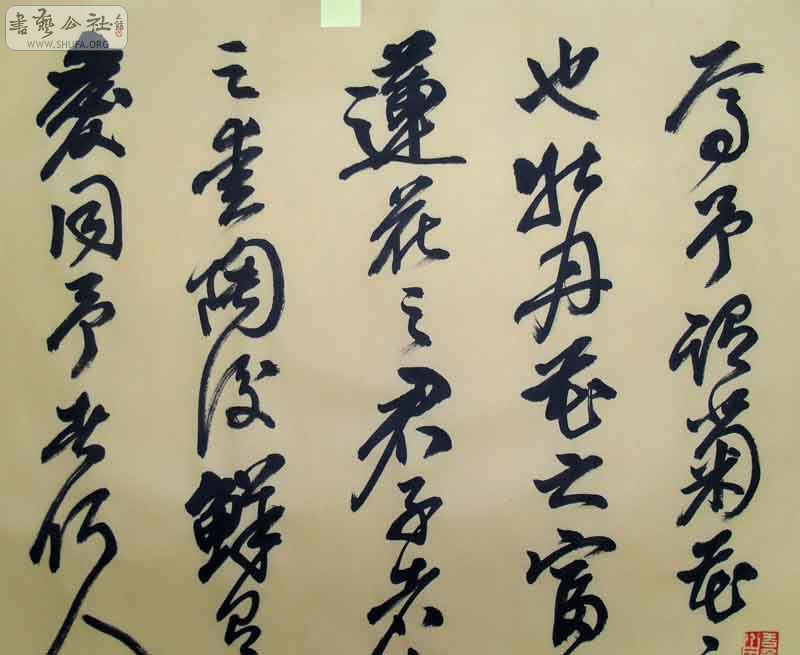 焉予謂菊花之
也牡丹花之富
蓮花之君子者
之愛陶後鮮有
愛同予者何人
書藝公社
WWW.SHUFA.ORG